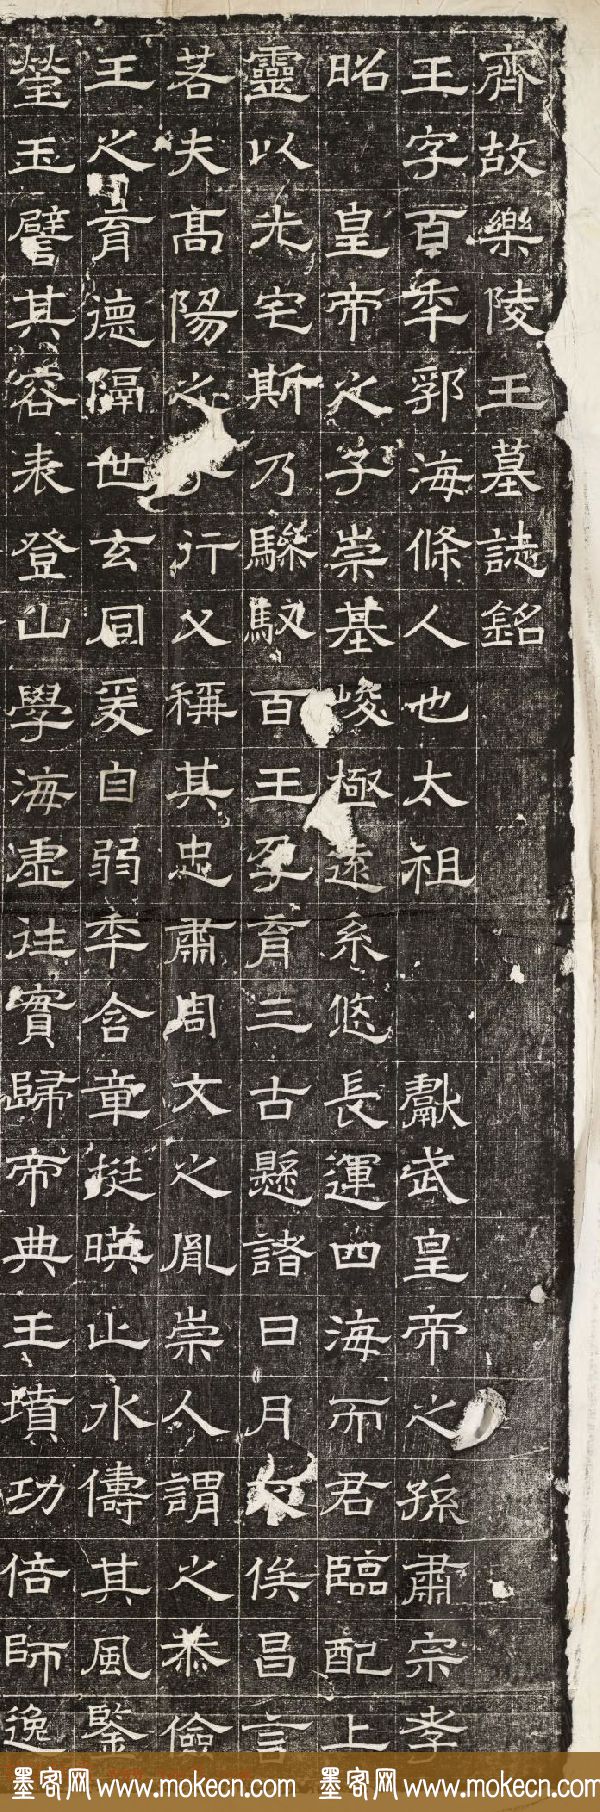 齊故樂陵王墓誌銘
王字百年郭海條人也太祖獻武皇帝之孫肅宗孝
昭皇帝之子崇基峻極遠系悠長運四海而君臨配上
靈以光宅斯乃驂馭百王孕育三古懸諸日月俟昌言
若夫高陽之子行父稱其忠肅周文之胤崇人謂之恭儉
王之育德隔世玄同爰自弱年含章挺暎止水儔其風鑒
瑩玉譬其容表登山學海虛往實歸帝典王墳功倍師逸
墨客网 www.mokecn.com 墨客网 www.mokecn.com